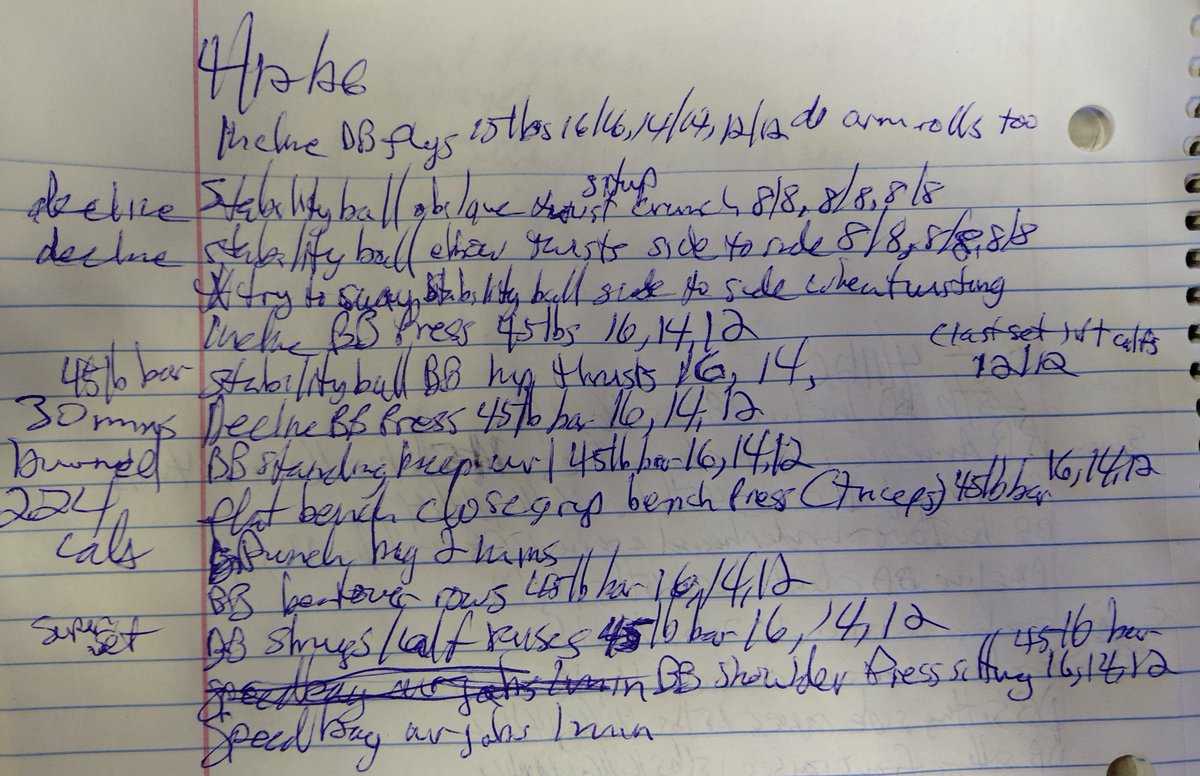 Incline DB flys 25lbs 16/16, 14/14, 12/12 do arm rolls too
situp
decline Stability ball oblique crunch 8/8, 8/8, 8/8
decline stability ball elbow thrusts side to side 8/8, 8/8, 8/8
try to sway stability ball side to side when twisting
Incline BB Press 45lbs 16, 14, 12
(last set) wt calfs
45lb bar stability ball BB hip thrusts 16, 14, 12/12
30 mins Decline BB Press 45lb bar 16, 14, 12
burned BB standing bicep curl 45lb bar 16, 14, 12
224 flat bench close grip bench Press (Triceps) 45lb bar 16, 14, 12
cals Punch bag 2 mins
BB bentover rows 45lb bar 16, 14, 12
super set BB shrugs/calf raises 45lb bar 16, 14, 12
45lb bar
BB shoulder Press sitting 16, 14, 12
Speed Bag air jabs 1 min